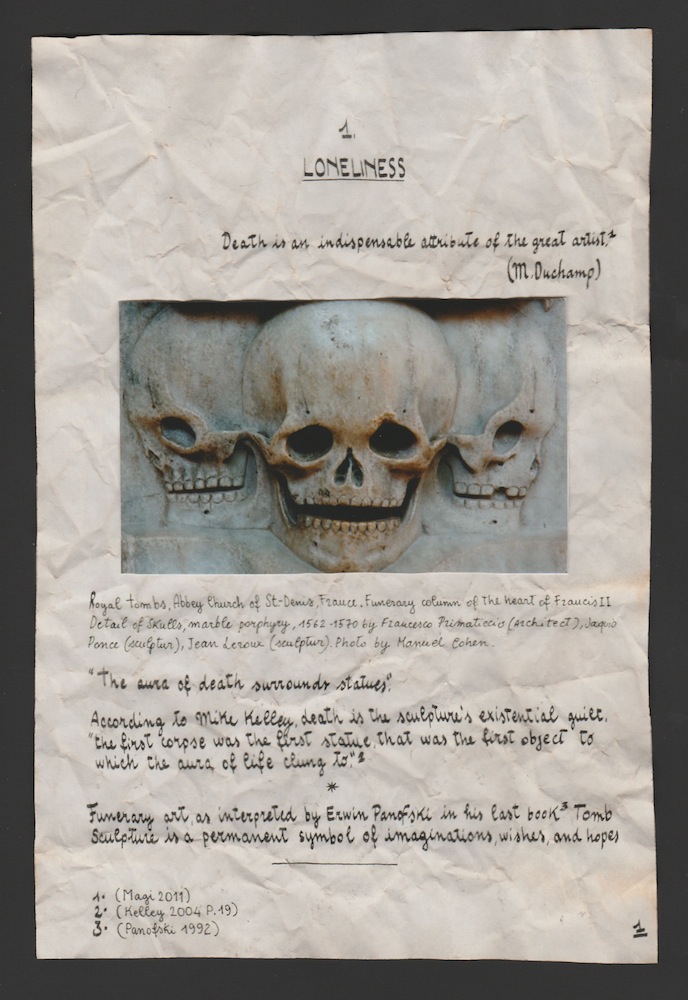 1.
LONELINESS
Death is an indispensable attribute of the great artist.1
(M. Duchamp)
Royal tombs, Abbey Church of St-Denis, France. Funerary column of the heart of Francis II
Detail of Skulls, marble porphyry, 1562-1570 by Francesco Primaticcio (Architect), Jaquio
Ponce (sculptur), Jean Leroux (sculptur). Photo by Manuel Cohen.
"The aura of death surrounds statues".
According to Mike Kelley, death is the sculpture's existential guilt.
"the first corpse was the first statue, that was the first object to
which the aura of life clung to."2
*
Funerary art, as interpreted by Erwin Panofski in his last book3 Tomb
Sculpture is a permanent symbol of imaginations, wishes, and hopes
1. (Magi 2011)
2. (Kelley 2004 P.19)
3. (Panofski 1992)
1